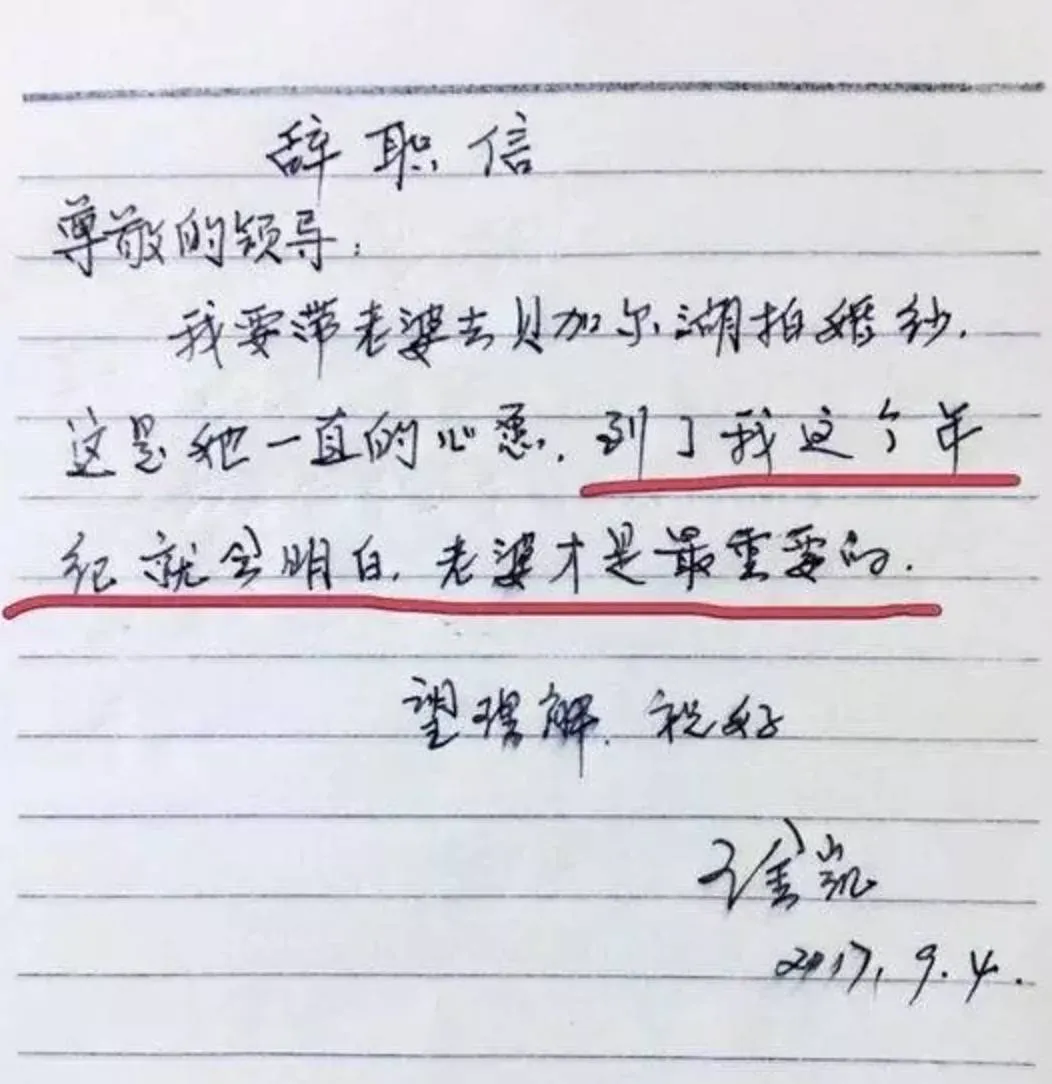 辞职信
尊敬的领导：
我要带老婆去贝加尔湖拍婚纱.
这是她一直的心愿.到了我这个年
纪就会明白.老婆才是最重要的.
望理解.祝好
王金凯
2017.9.4.